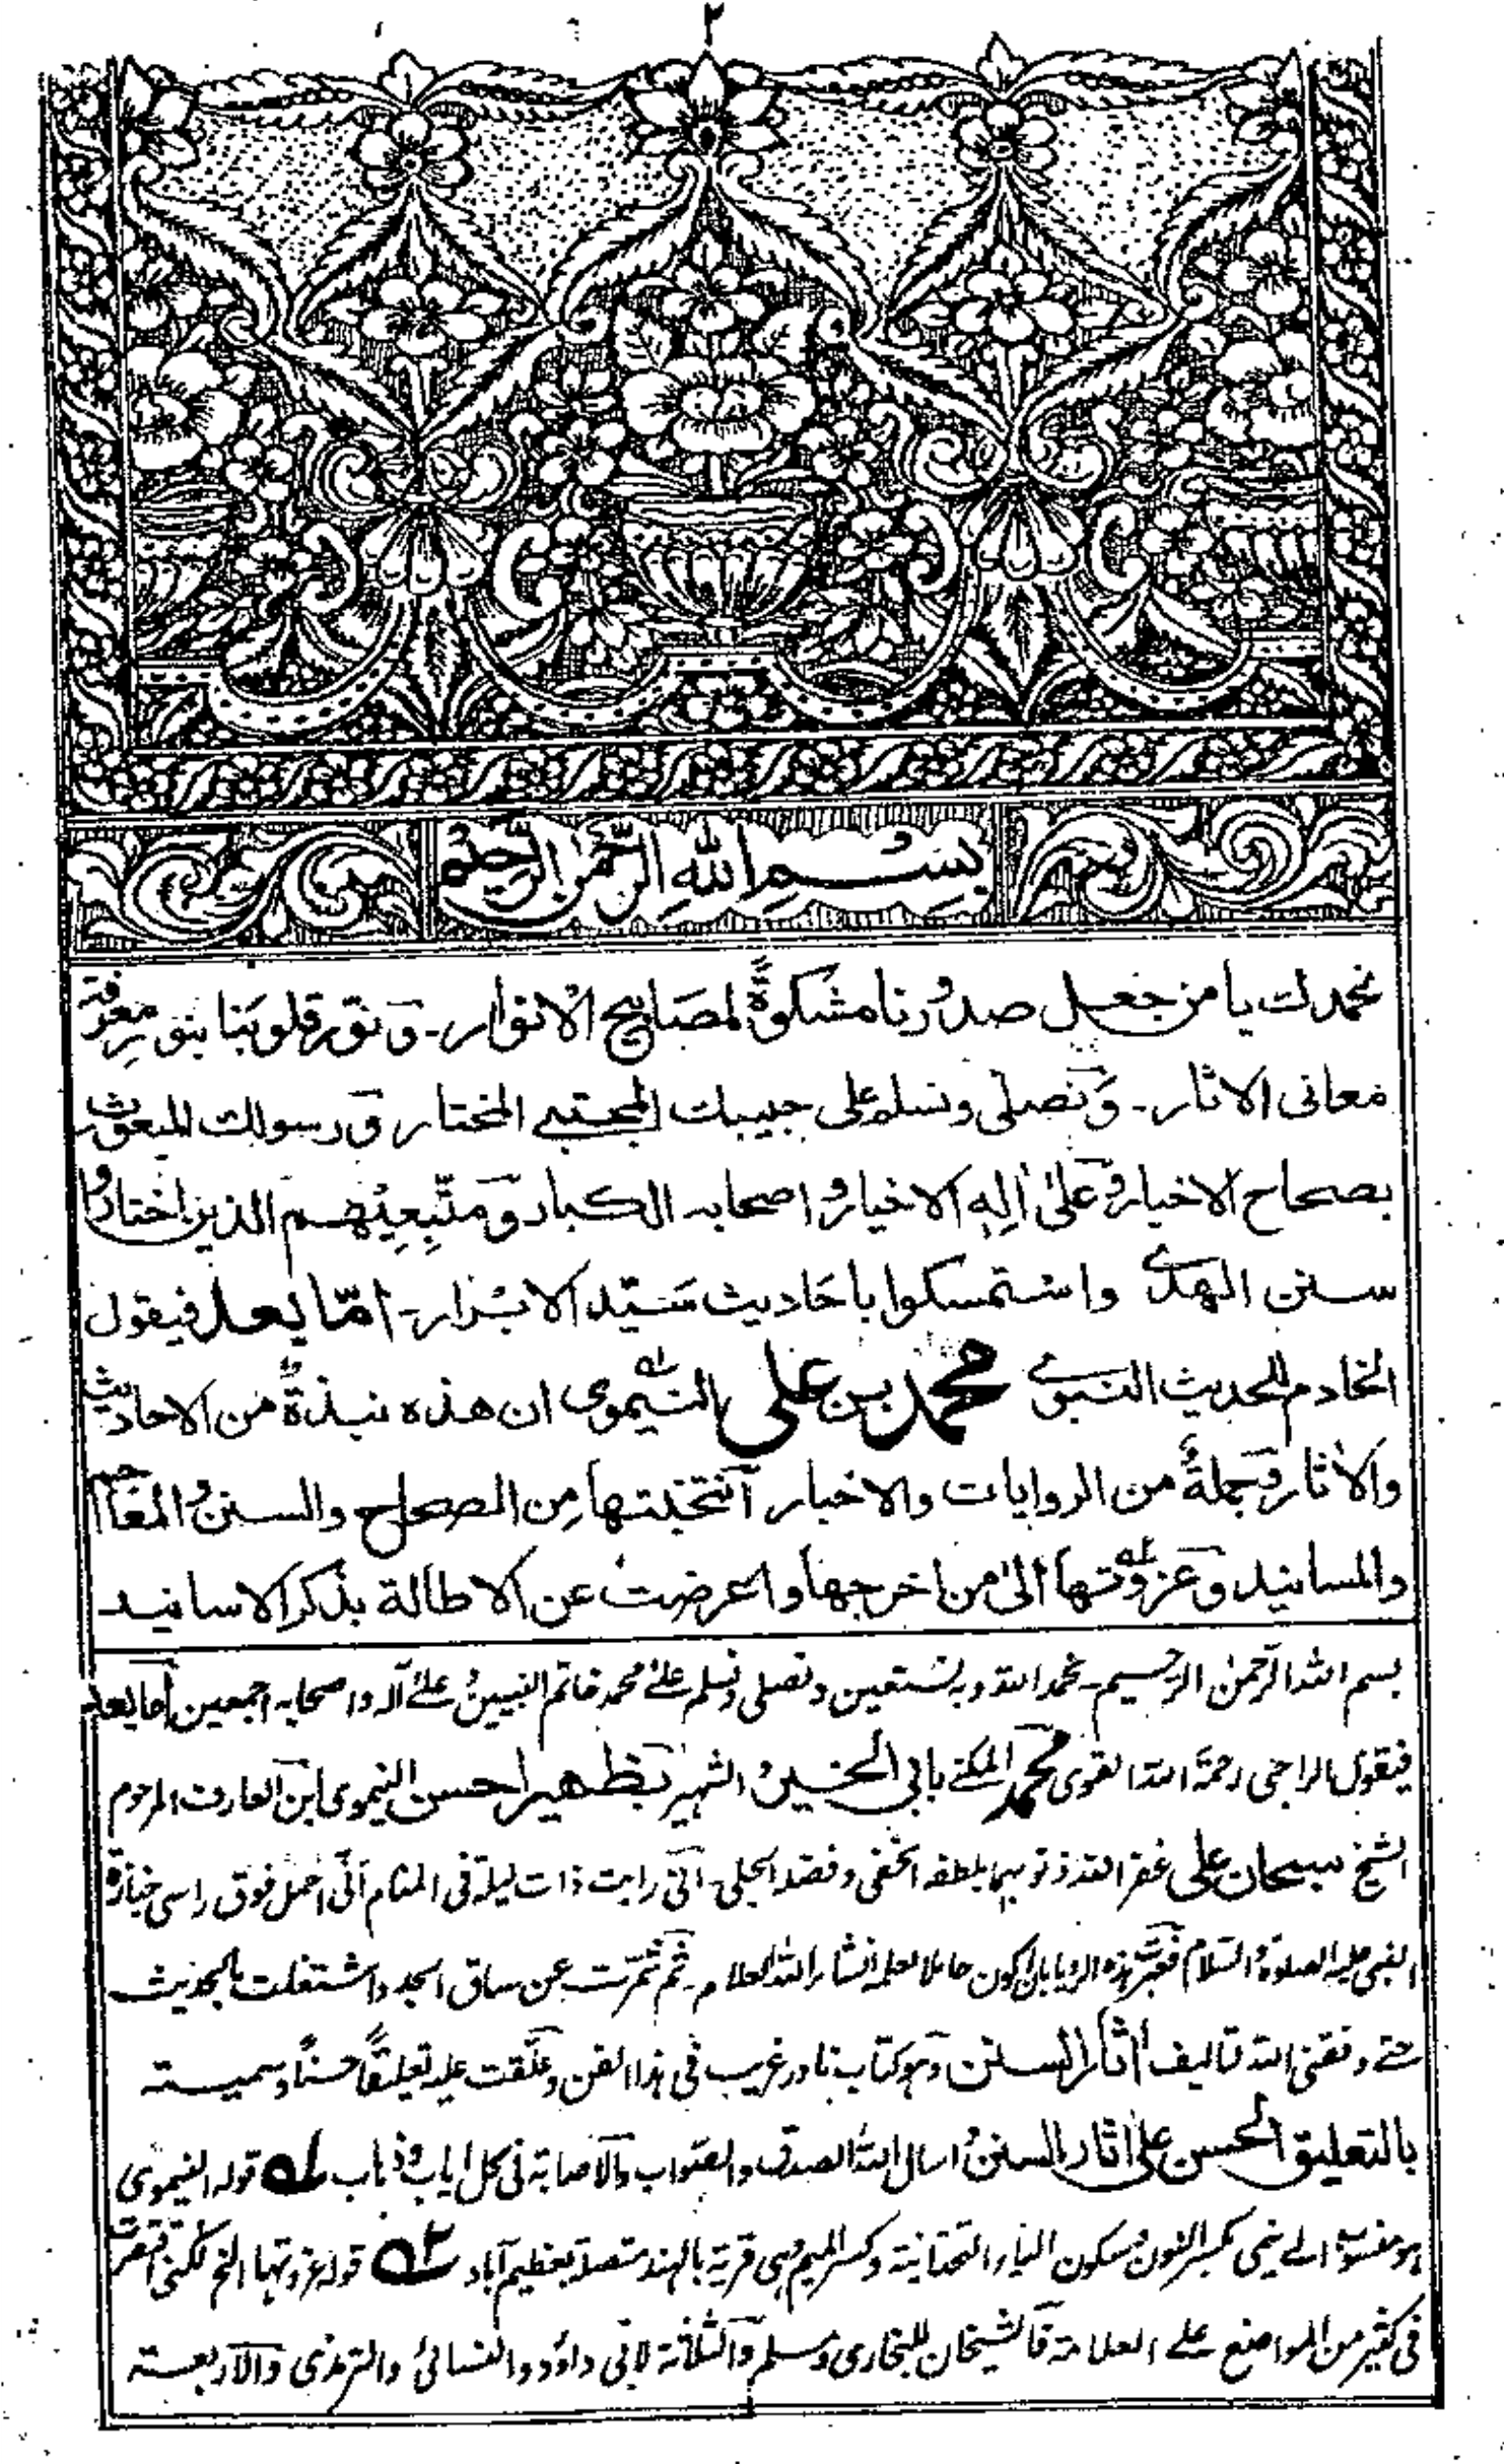 ٢
بِسْمِ اللهِ الرَّحْمٰنِ الرَّحِيْمِ
نحمدك يا من جعل صدورنا مشكوةً لمصابيح الانوار۔ ونوّر قلوبنا بنور معرفة
معانى الاثار۔ ونصلى ونسلم على حبيبك المجتبے المختار ورسولك المبعوث
بصحاح الاخبار وعلىٰ اٰلهِ الاخيار واصحابه الكبار ومتّبِعِيْهم الذين اختاروا
سنن الهدى واستمسكوا باحاديث سيّد الابرار۔ امّا بعد فيقول
الخادم للحديث النبوى محمد بن على النيموى ان هذه نبذةٌ من الاحاديث
والاٰثار وجملةٌ من الروايات والاخبار انتخبتها من الصحاح والسنن والمعاجم
والمسانيد وعزوتها الىٰ من اخرجها واعرضت عن الاطالة بذكر الاسانيد
بسم الله الرّحمٰن الرحيم۔ نحمد الله وبه نستعين ونصلى ونسلم علىٰ محمد خاتم النبيين وعلىٰ آله واصحابه اجمعين اما بعد
فيقول الراجى رحمة الله القوى محمد المكنے بابى الخير الشهير بظهير احسن النيموى ابن العارف المرحوم
الشيخ سبحان على غفر الله ذنوبهما بلطفه الخفى وفضله الجلى۔ انّى رايت ذات ليلة فى المنام انّى احمل فوق راسى جنازة
النبى عليه الصلوة والسلام فعبّرت هذه الرؤيا بان اكون حاملا لعلمه انشاء الله العلام۔ ثم شمّرت عن ساق الجد واشتغلت بالحديث
حتے وفقنى الله تاليف اٰثار السنن وهو كتاب نادر غريب فى هذا الفن وعلّقت عليه تعليقًا حسنًا وسميته
بالتعليق الحسن على اٰثار السنن واسال الله الصدق والصواب والاصابة فى كل اياب وذهاب ١ه قوله النيموى
هو منسوب الے نيمى بكسر النون وسكون الياء التحتانية وكسر الميم وهى قرية بالهند متصلة بعظيم آباد ٢ه قوله عزوتها الخ لكنى اقتصرت
فى كثير من المواضع علے العلامة فالشيخان للبخارى ومسلم والثلاثة لابى داؤد والنسائى والترمذى والاربعة